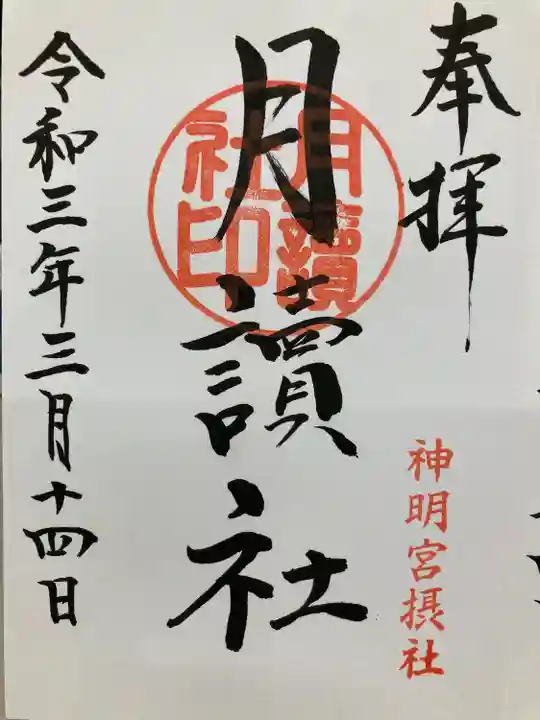 奉拝
神明宮摂社
月讀社
月讀
社印
令和三年三月十四日